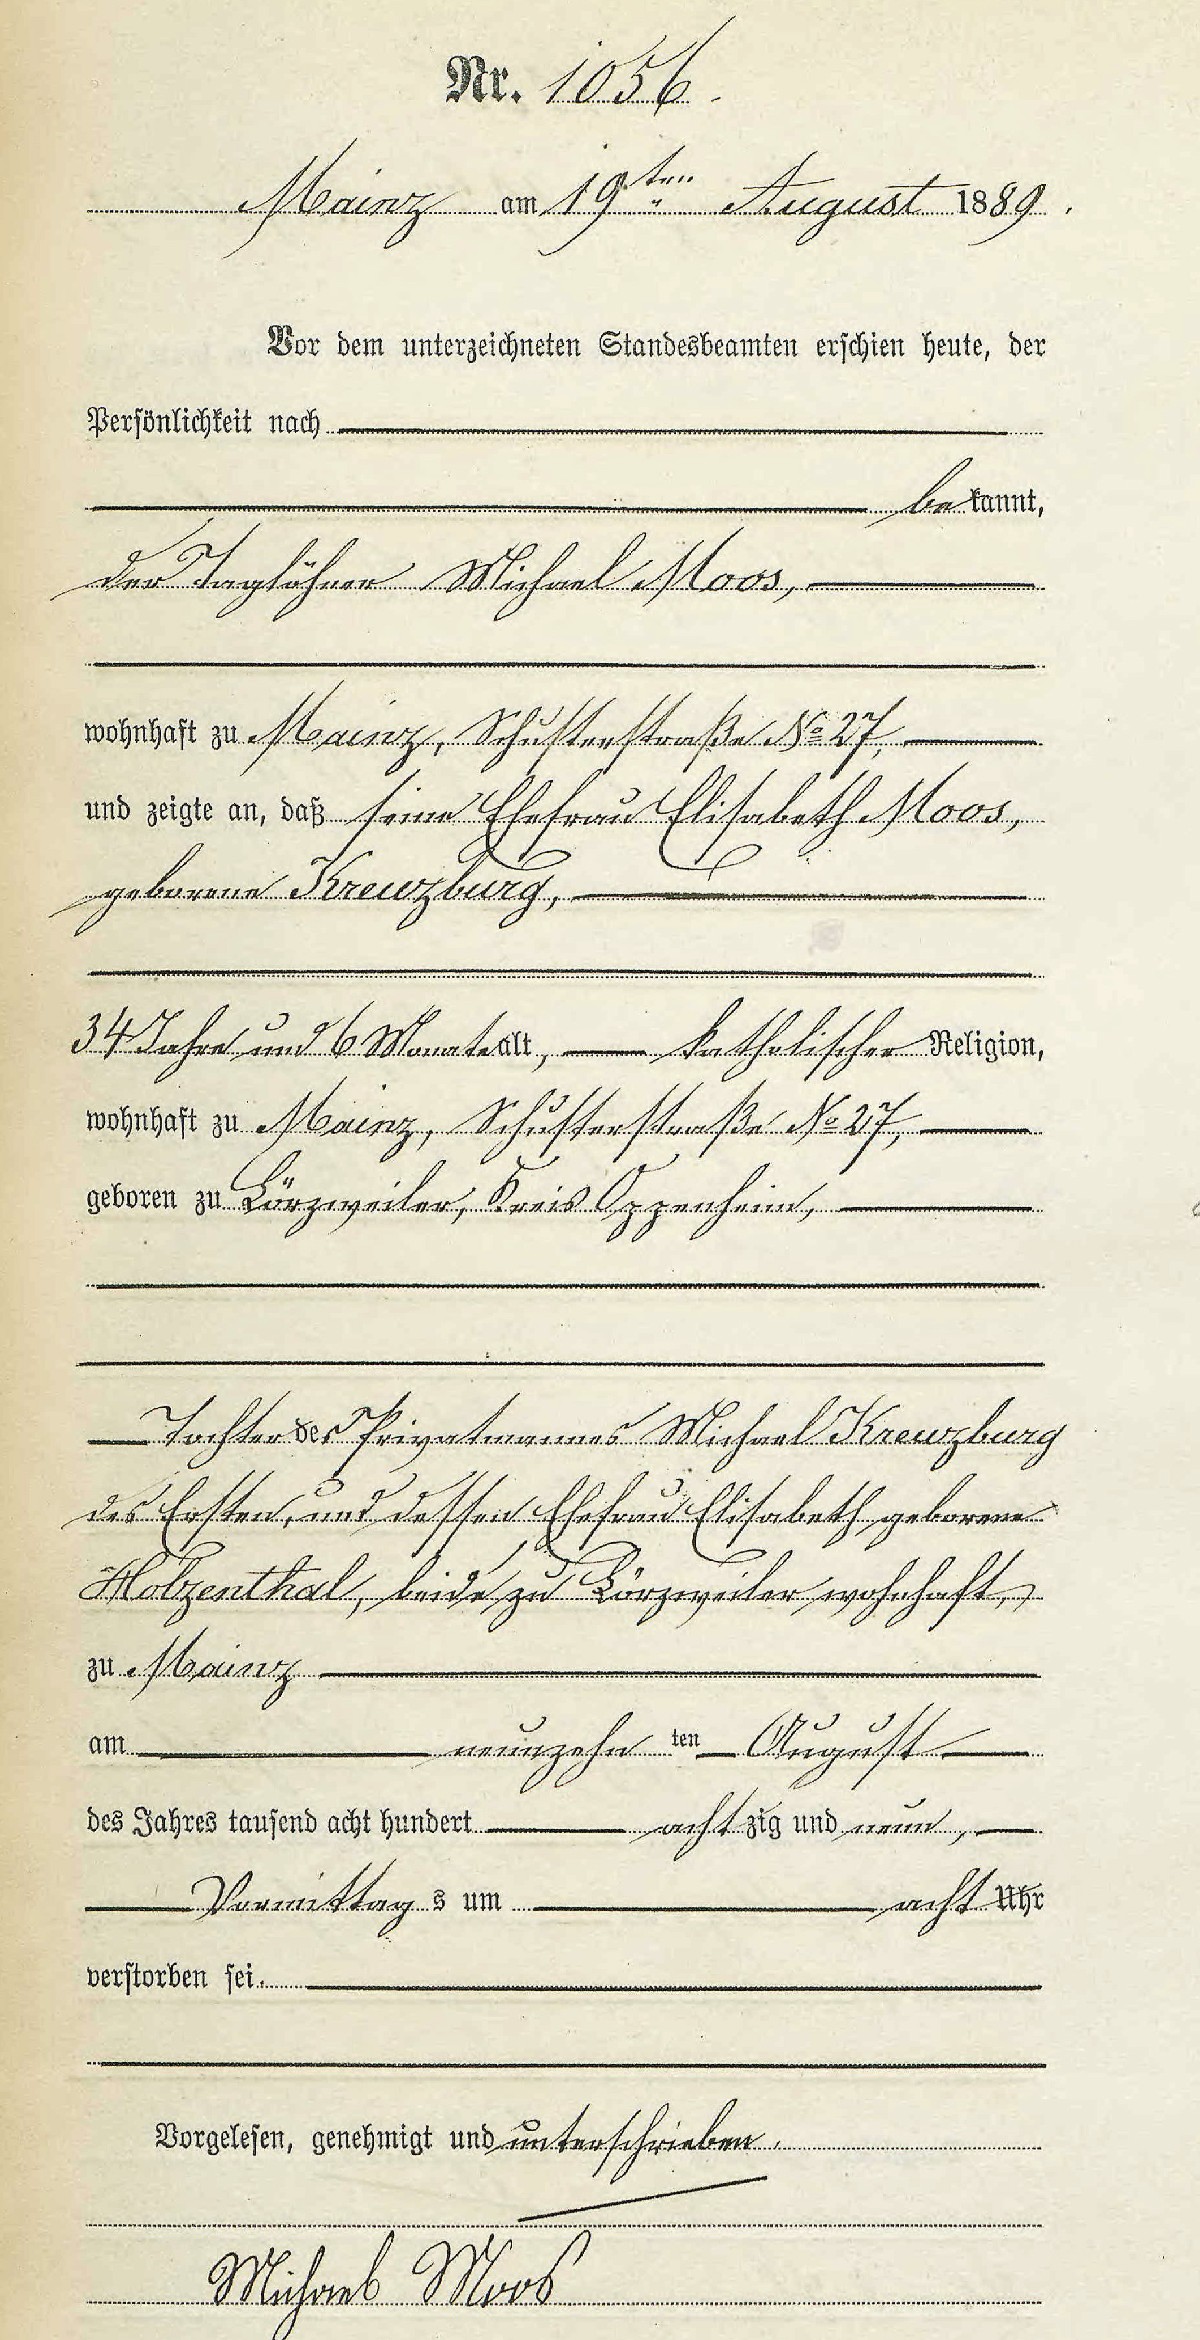 Nr. 1056.
Mainz am 19ten August 1889.
Vor dem unterzeichneten Standesbeamten erschien heute, der
Persönlichkeit nach
bekannt,
der Taglöhner Michael Moos,
wohnhaft zu Mainz, Schusterstraße No 27,
und zeigte an, daß seine Ehefrau Elisabeth Moos,
geborene Kreuzburg,
34 Jahre und 6 Monate alt, katholischer Religion,
wohnhaft zu Mainz, Schusterstraße No 27,
geboren zu Lörzweiler, Kreis Oppenheim,
Tochter des Privatmannes Michael Kreuzburg
des Ersten, und dessen Ehefrau Elisabeth geborene
Holzenthal, beide zu Lörzweiler wohnhaft,
zu Mainz
am neunzehn ten August
des Jahres tausend acht hundert achtzig und neun,
Vormittags um acht Uhr
verstorben sei.
Vorgelesen, genehmigt und unterschrieben.
Michael Moos